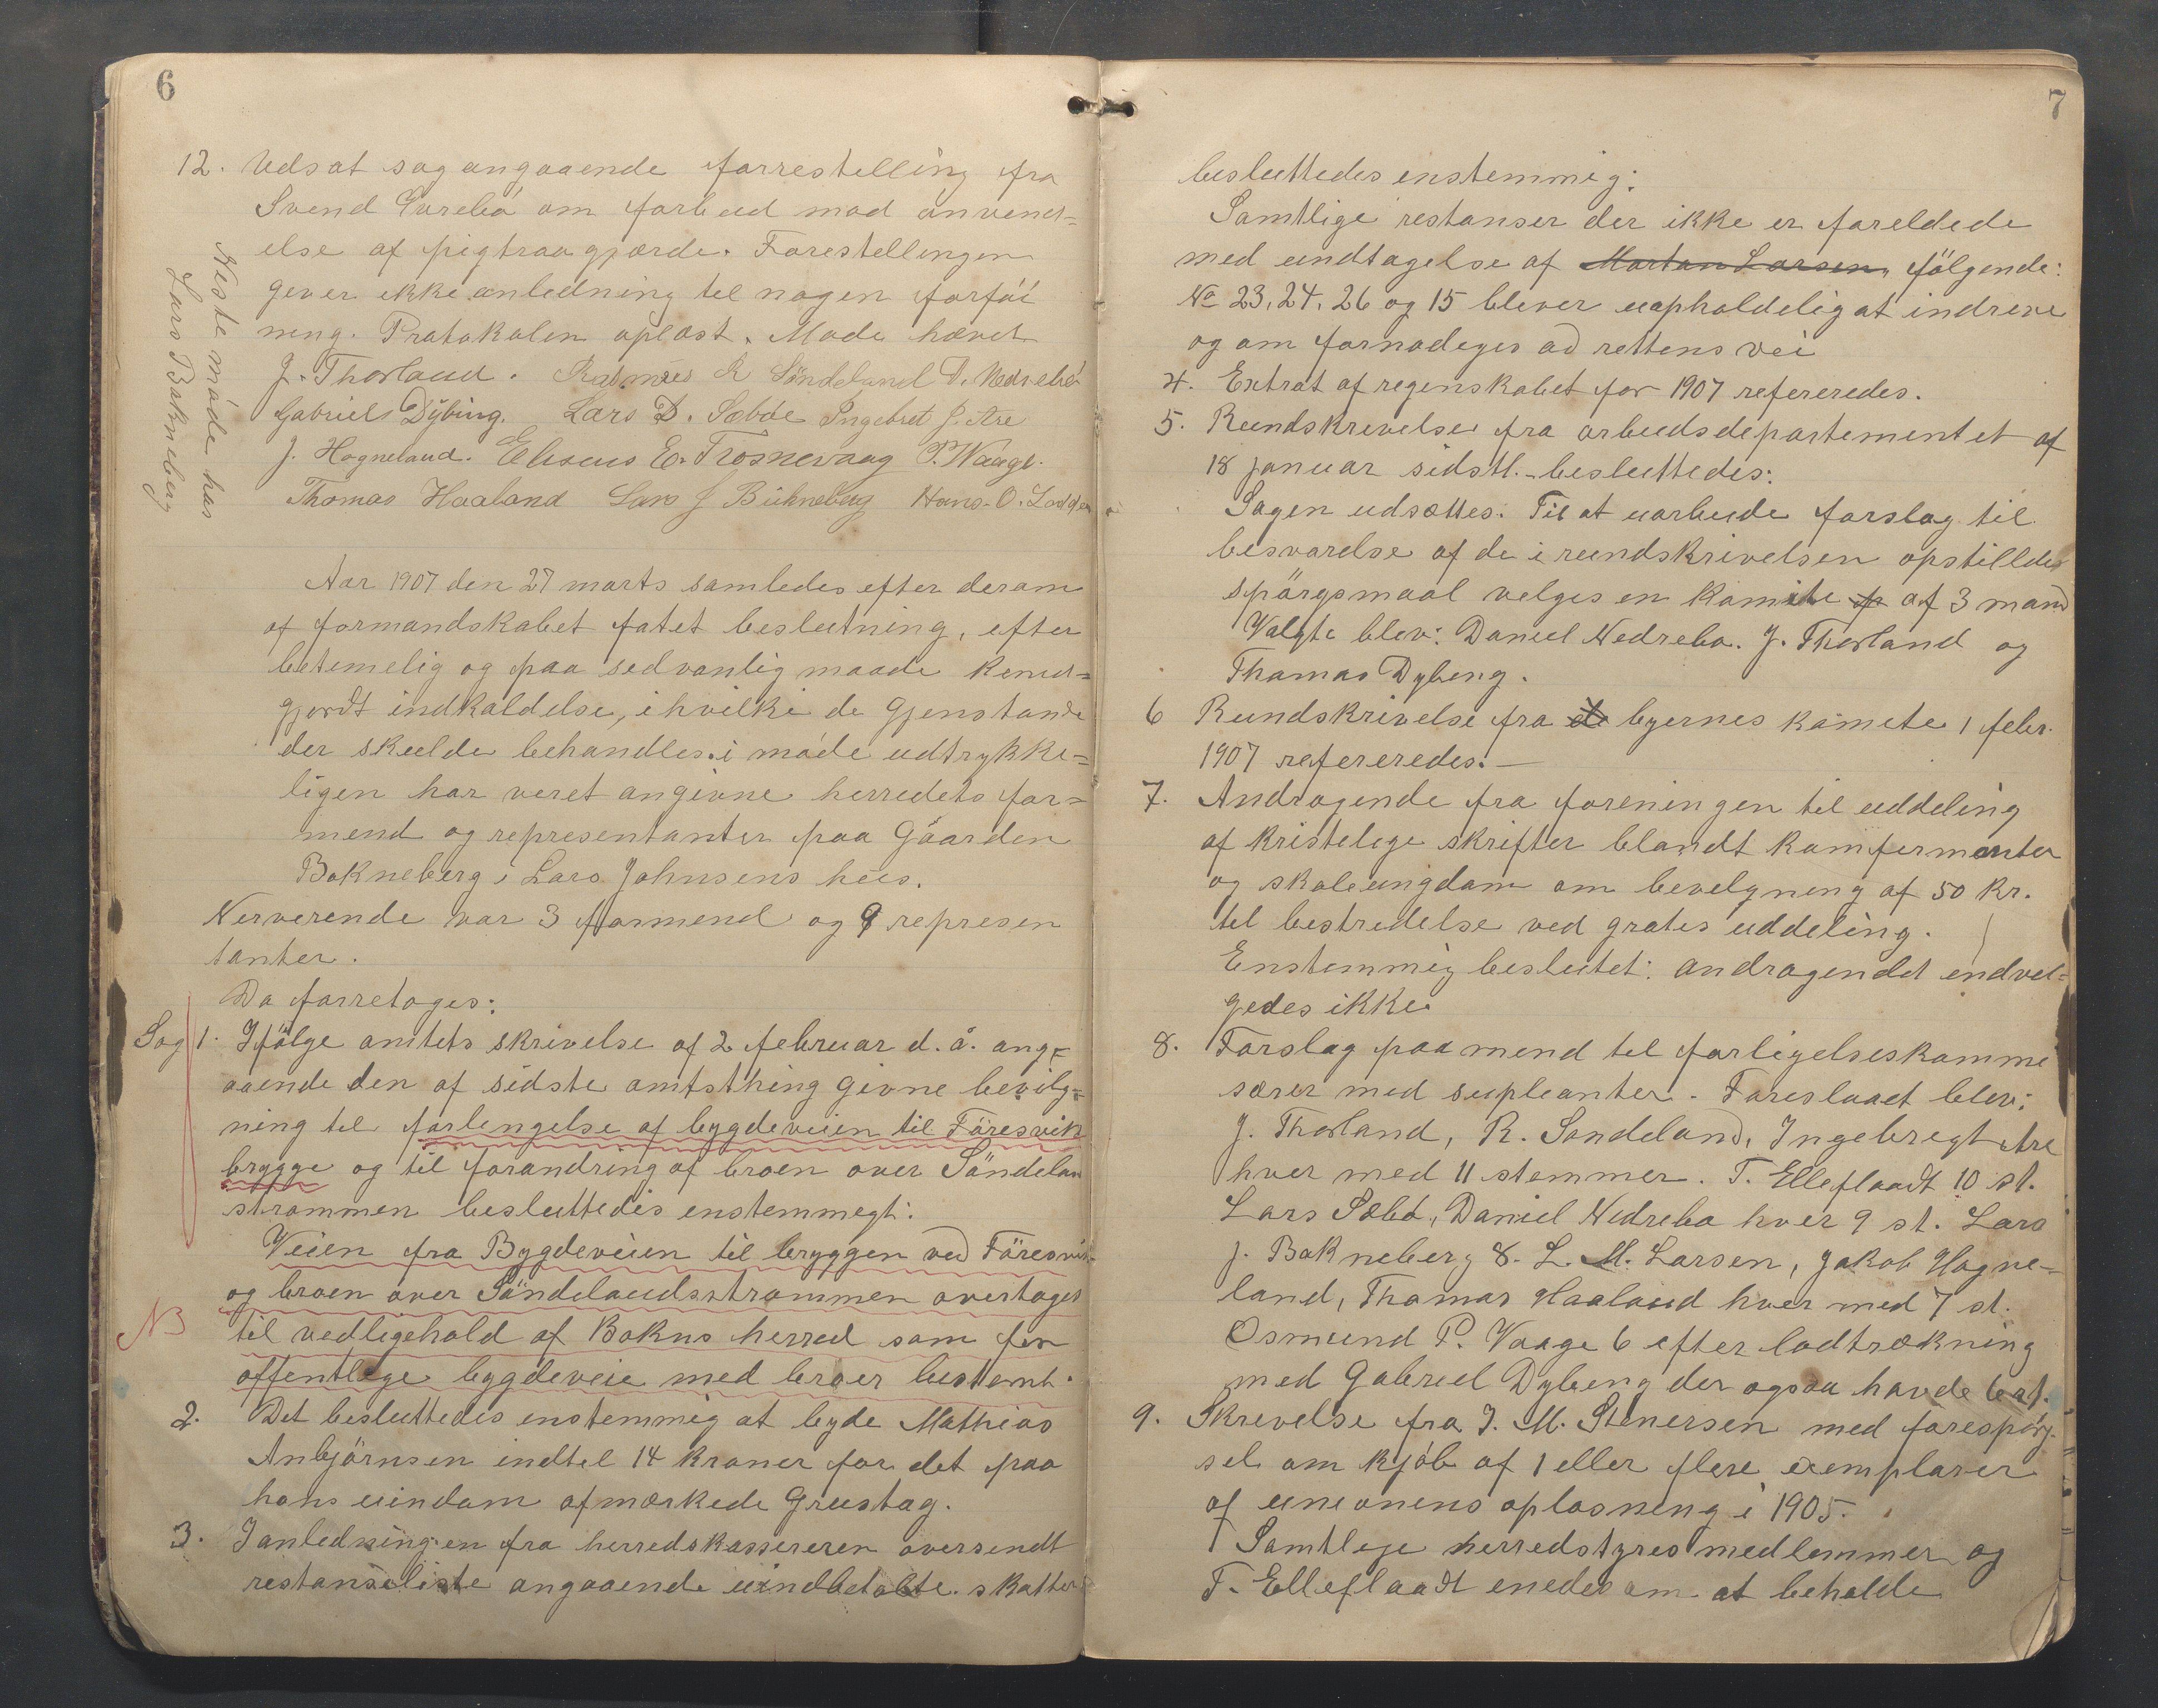 6
12. Udsat sag angaaende forrestelling fra
Svend Qvrebø om forbud mod anvend-
else af pigtraagjærde. Forestellingen
gever ikke anledning til nogen forføi
ning. Protokolen oplæst. Møde hævet
J. Thorland. Rasmus R Søndeland D. Nedrebø
Gabriel Dybing. Lars D. Sæbøe Ingebret J. Are
J. Hogneland. Eliseus E. Trosnevaag P. Waage.
Thomas Haaland Lars J Bukneberg Hans. O. Lodden
Neste møde hos
Lars Bokneberg
Aar 1907 den 27 marts samledes efter derom
af formandskabet fatet beslutning, efter
betimelig og paa sedvanlig maade kund-
gjordt indkaldelse, i hvilke de gjenstande
der skulde behandles i møde udtrykke-
ligen har veret angivne herredets for-
mend og representanter paa Gaarden
Bokneberg i Lars Johnsens hus.
Nerverende var 3 formend og 9 represen
tanter.
Da forretoges:
Sag 1. Ifølge amtets skrivelse af 2 februar d. å. ang-
aaende den af sidste amtsthing givne bevilg-
ning til forlengelse af bygdeveien til Føresvik
brygge og til forandring af broen over Søndelan
strømmen besluttedes enstemmegt:
Veien fra Bygdeveien til bryggen ved Føresvik
og broen over Søndelandsstrømmen overtages
NB
til vedligehold af Bokns herred som for
offentlege bygdeveie med broer bestemt.
2. Det besluttedes enstemmig at byde Mathias
Anbjørnsen indtil 14 kroner for det paa
hans eiendom afmærkede Grustag.
3. I anledningen fra herredskassereren oversendt
restanseliste angaaende uindbetalte skatter
7
besluttedes enstemmig:
Samtlige restanser der ikke er foreldede
med undtagelse af Morten Larsen, følgende:
No 23, 24, 26 og 15 blever uopholdelig at indreve
og om fornødeges ad rettens vei
4. Extrat af regenskabet for 1907 refereredes.
5. Rundskrivelse fra arbudsdepartementet af
18 januar sidstl. besluttedes:
Sagen udsættes. Til at uarbude forslag til
besvarelse af de i rundskrivelsen opstillde
spørgsmaal velges en komite af 3 mand
Valgte blev: Daniel Nedrebø. J. Thorland og
Thomas Dybing.
6 Rundskrivelse fra de byernes komete 1 febr.
1907 refereredes.—
7. Andragende fra foreningen til uddeling
af kristelige skrifter blandt komfermanter
og skoleungdom om bevelgning af 50 kr.
til bestredelse ved gratis uddeling.
Enstemmig beslutet: andragendet indvel-
gedes ikke
8. Forslag paa mend til forligelseskomme
særer med supleanter. Foreslaaet blev:
J. Thorland, R. Søndeland, Ingebregt Are
hver med 11 stemmer. T. Elleflaadt 10 st.
Lars Sæbø, Daniel Nedrebø hver 9 st. Lars
J. Bokneberg 8. L. M. Larsen, Jakob Hogne-
land, Thomas Haaland hver med 7 st.
Osmund P. Vaage 6 efter lodtrækning
med Gabriel Dybing der ogsaa havde 6 st.
9. Skrevelse fra J. M. Stenersen med forespørg-
sel om kjøb af 1 eller flere exemplarer
af unionens opløsning i 1905.
Samtlege herredstyresmedlemmer og
T. Elleflaadt enedes om at beholde